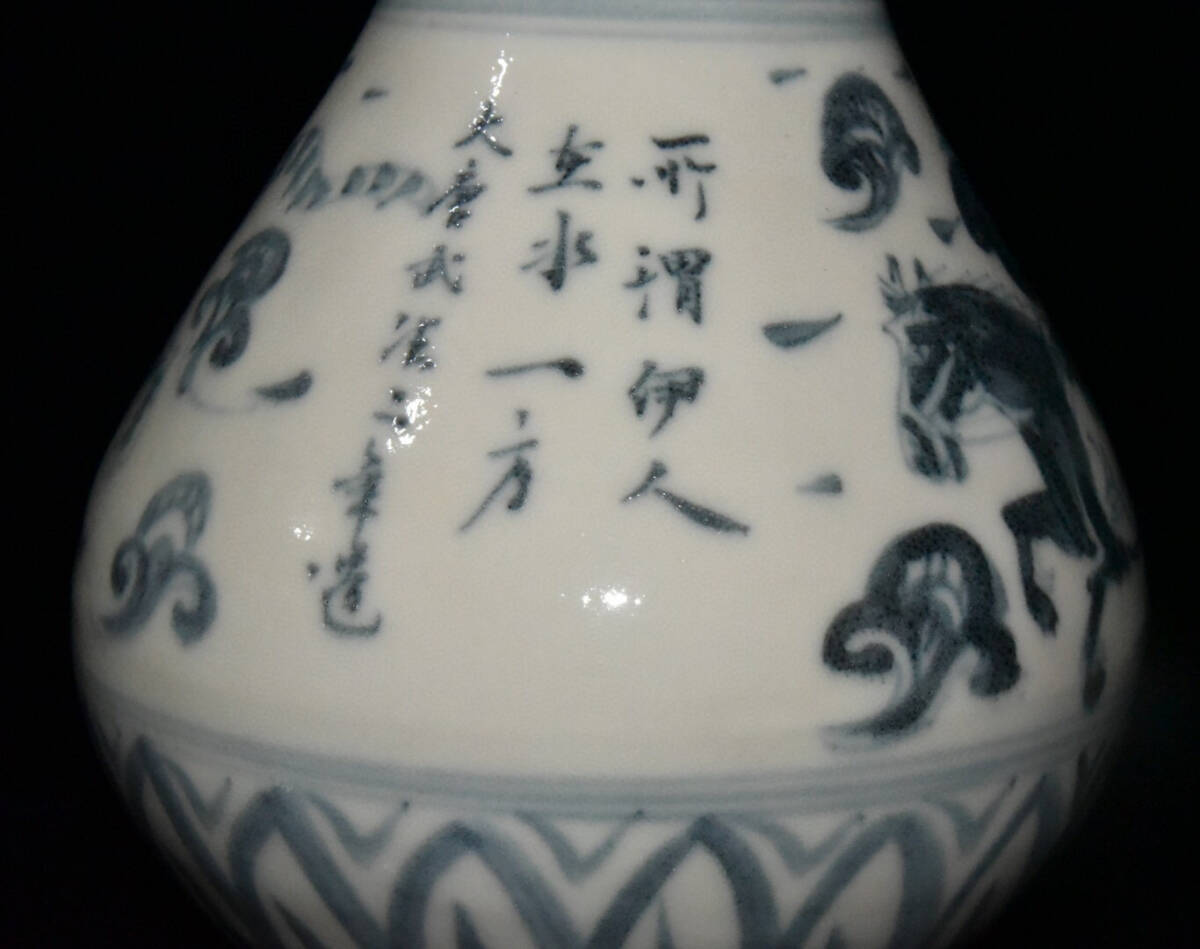 所謂伊人
在水一方
大唐武德二年造